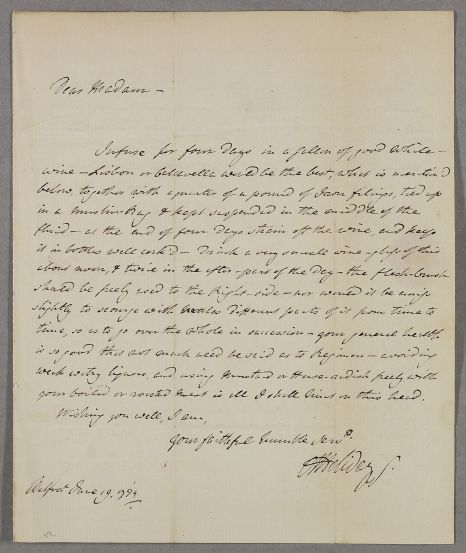 Dear Madam —
Infuse for four Days in a gallon of good White-
wine — Lisbon or Calcavella would be the best, what is mention'd
below, together with a quarter of a pound of Iron filings, tied up
in a muslin-Bag & kept suspended in the middle of the
fluid — at the end of four Days strain off the wine, and keep
it in bottles well cork'd — Drink a very small wine-glass of this
about noon, & twice in the after-part of the Day — the flesh-brush
should be freely used to the Right-side — nor would it be amiss
slightly to scourge with nettles different parts of it from time to
time, so as to go over the whole in succession — your general health
is so good that not much need be said as to Regimen — avoiding
weak watry liquors, and using Mustard or Horse-radish freely with
your boiled or roasted meat is all I shall hint on this head.
Wishing you well, I am,
your faithful humble Serv.
Haliday
Belfast June 19. 1794